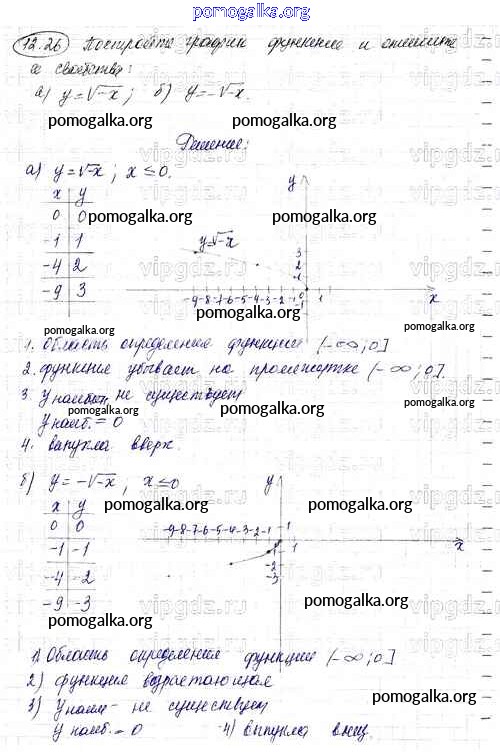 pomogalka.org
12.26 Построить график функции и опишите
её свойства:
а) y=√-x; б) y=-√-x.
pomogalka.org
pomogalka.org
Решение:
а) y=√-x; x≤0.
x y
0 0
-1 1
-4 2
-9 3
pomogalka.org
pomogalka.org
y
y=√-x
3
2
1
-9-8-7-6-5-4-3-2-1 0 1
-1
x
pomogalka.org
pomogalka.org
1. Область определения функции (-∞;0]
2. функция убывает на промежутке (-∞;0].
3. y наибол. не существует
pomogalka.org
pomogalka.org
y наиб. = 0
4. выпукла вверх.
б) y=-√-x; x≤0
x y
0 0
-1 -1
-4 -2
-9 -3
pomogalka.org
pomogalka.org
y
-9-8-7-6-5-4-3-2-1 1
1
-1
-2
-3
x
pomogalka.org
pomogalka.org
1) Область определения функции (-∞;0]
2) функция возрастающая
3) y наим - не существует
pomogalka.org
y наиб. = 0 4) выпукла вниз.
pomogalka.org
vipgdz.ru